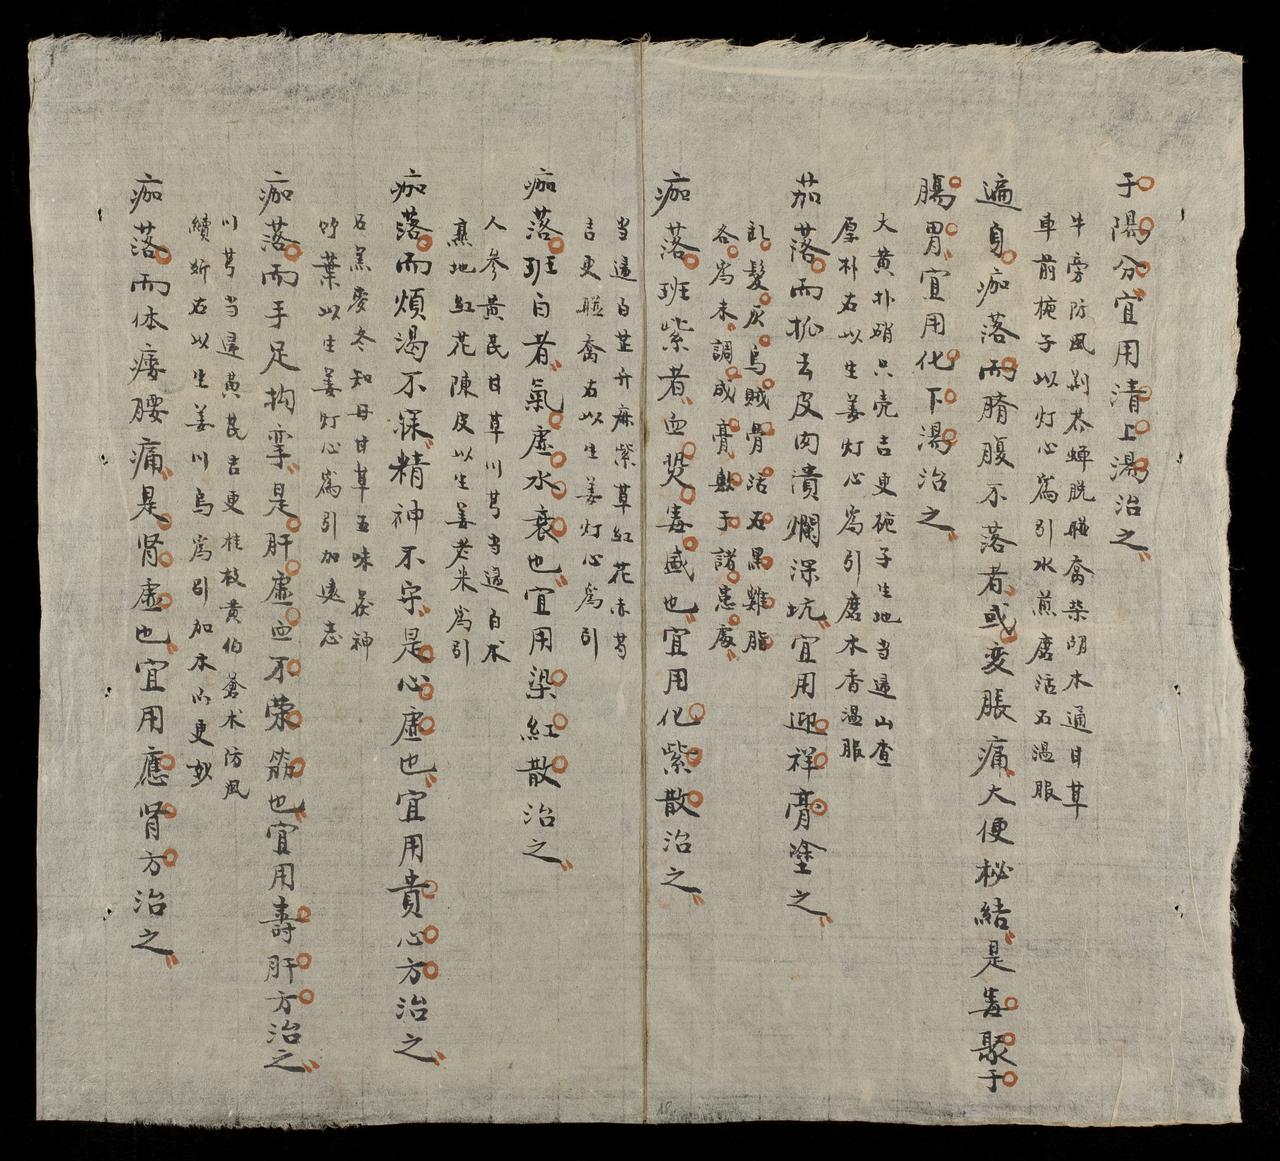 于陽分宜用清上湯治之
牛旁防風荆芥蟬脱連喬柴胡木通甘草
車前梔子以灯心為引水煎磨活石温服
遍身痂落而脐腹不落者或变脹痛大便秘結是毒聚于
腸胃宜用化下湯治之
大黄朴硝只壳吉更梔子生地当逯山查
厚朴右以生姜灯心為引磨木香温服
茄落而抓去皮肉潰爛深坑宜用迎祥膏塗之
乱髮灰烏賊骨活石黑雞脂
各為末調成膏敷于諸患處
痂落班紫者血熒毒盛也宜用化紫散治之
当逯白芷升麻紫草紅花赤芍
吉更連喬右以生姜灯心為引
痂落班白者氣虚水衰也宜用染紅散治之
人参黄芪甘草川芎当逯白术
熏地紅花陳皮以生姜老米為引
痂落而煩渴不寐精神不守是心虚也宜用貴心方治之
石羔麥冬知母甘草五味茯神
竹葉以生姜灯心為引加遠志
痂落而手足拘挛是肝虚血不荣筋也宜用壽肝方治之
川芎当逯黄芪吉更桂枝黄伯蒼术防風
續斷右以生姜川烏為引加木瓜更妙
痂落而体瘘腰痛是肾虚也宜用應肾方治之